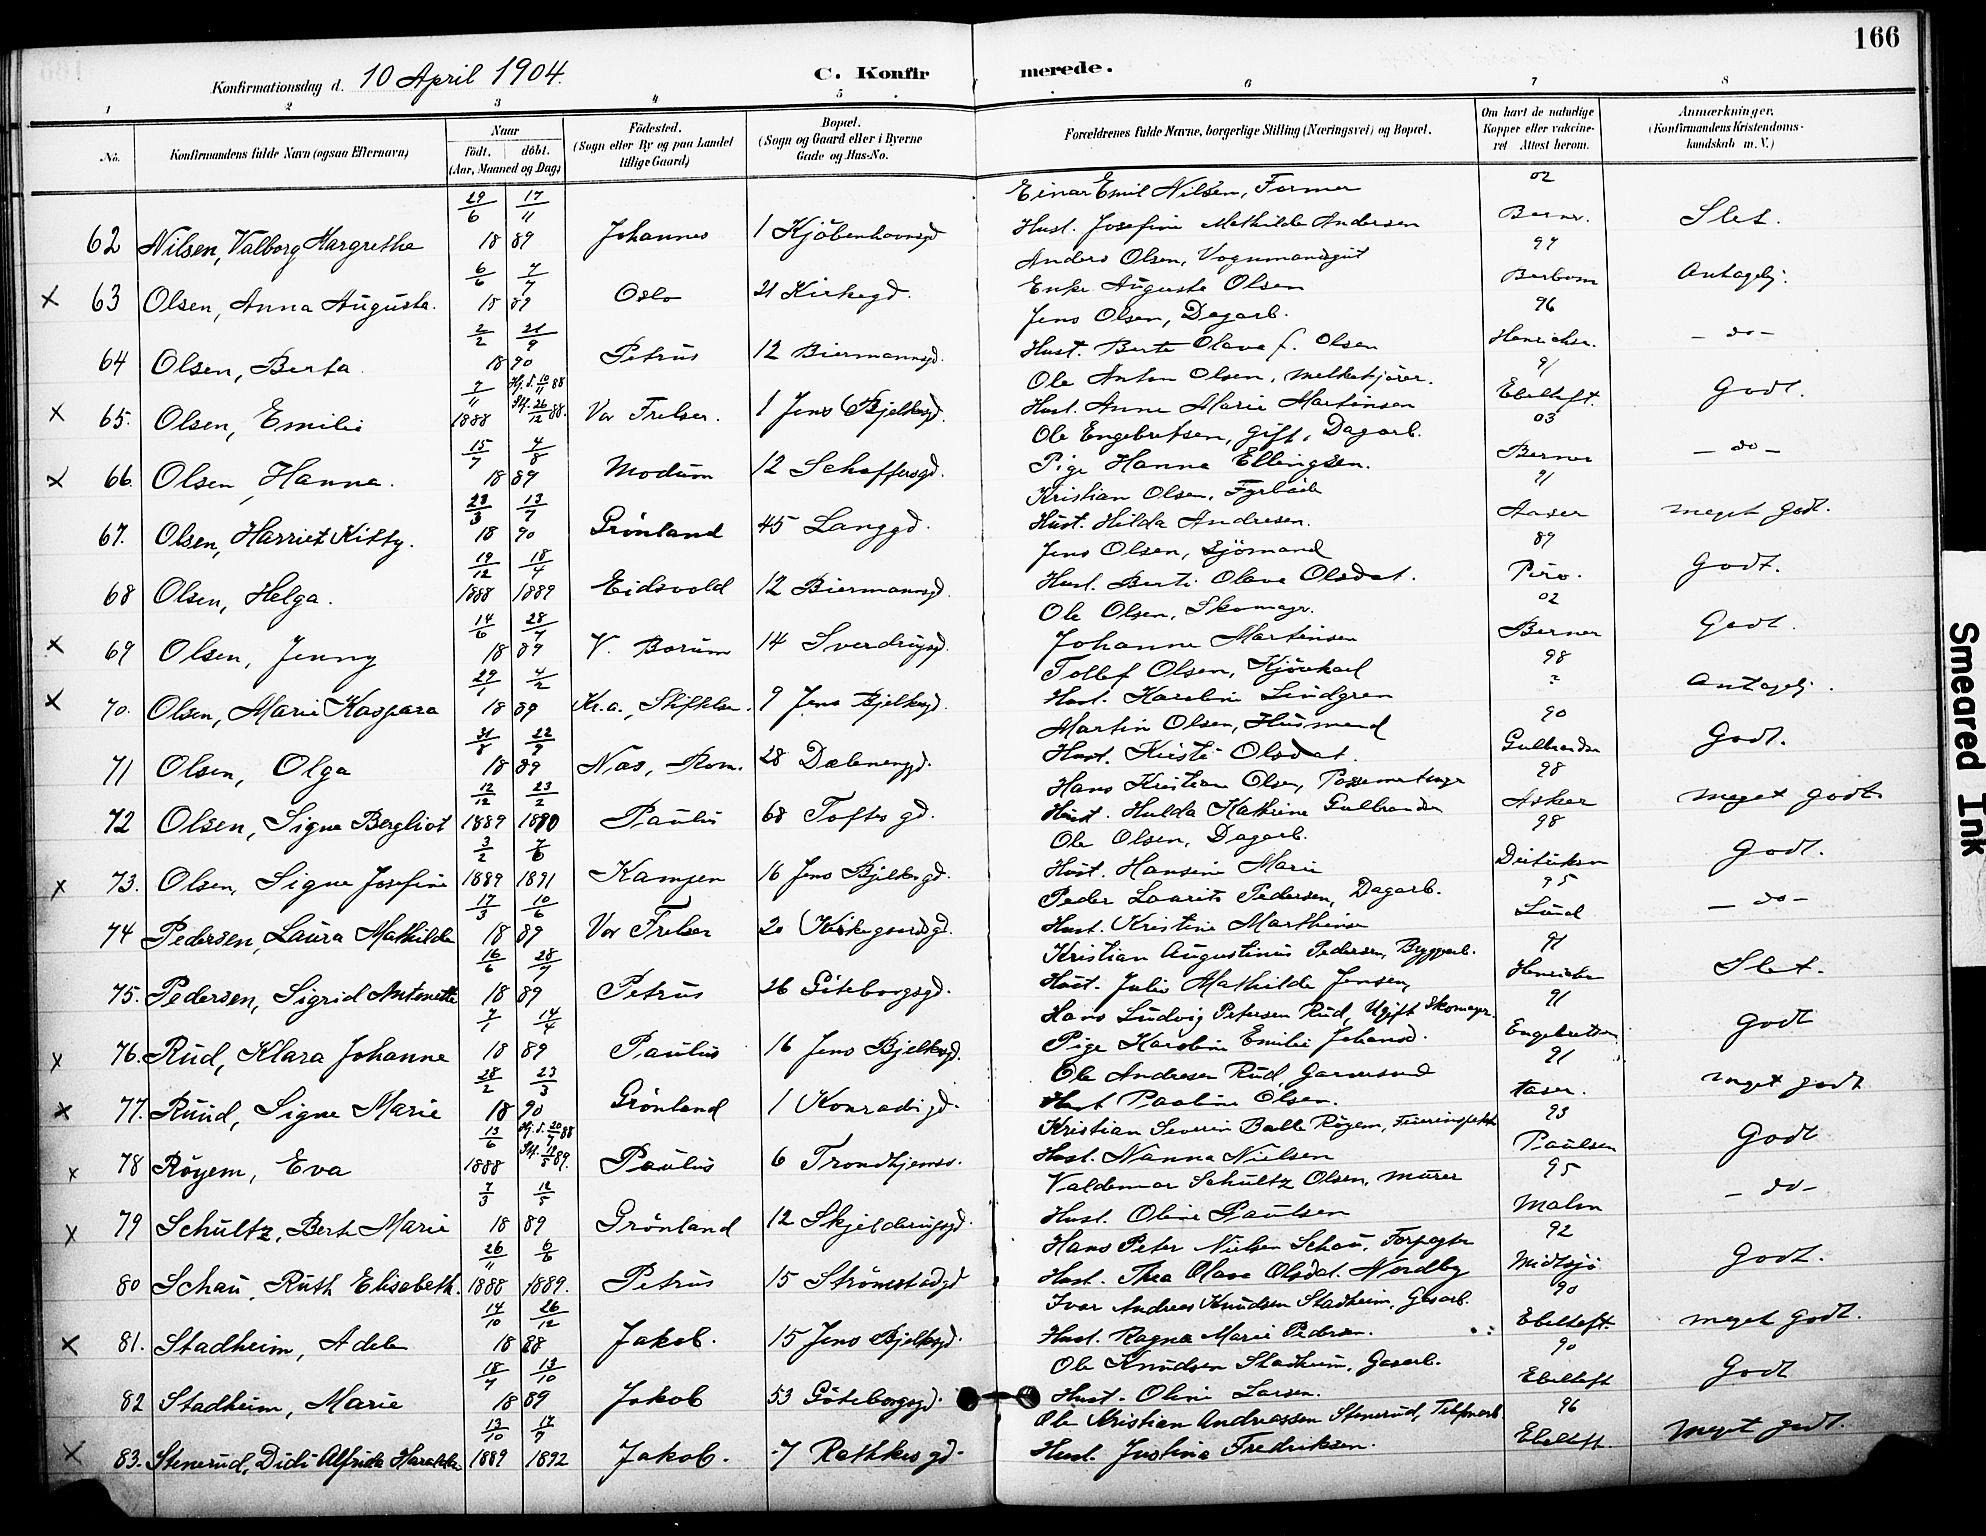 166
Konfirmationsdag d. 10 April 1904. C. Konfirmerede.
1 2 3 4 5 6 7 8
No. Konfirmandens fulde Navn (ogsaa Efternavn) Naar Födt. döbt. (Aar, Maaned og Dag) Födested. (Sogn eller By og paa Landet tillige Gaard) Bopæl. (Sogn og Gaard eller i Byerne Gade og Hus-No. Forældrenes fulde Navne, borgerlige Stilling (Næringsvei) og Bopæl. Om havt de naturlige Kopper eller vakcineret Attest herom. Anmærkninger, (Konfirmandens Kristendomskundskab m. V.)
29/6 17/11 Einar Emil Nilsen, Former 02
62 Nilsen, Valborg Margrethe 18 89 Johannes 1 Kjöbenhavnsgd Hust. Josefine Mathilde Andersen Berner. Slet.
6/6 7/7 Anders Olsen, Vognmandsgut 97
x 63 Olsen, Anna Augusta. 18 89 Oslo 21 Kirkegd. Enke Augusta Olsen Antagelig.
2/2 21/9 Jens Olsen, Dagarb. 96
64 Olsen, Berta 18 90 Petrus 12 Biermannsgd. Hust. Berte Olava f. Olsen Henrichs. - do -
7/11 Hj. d. 10/11 88 Ole Anton Olsen, melkekjörer. 91
x 65. Olsen, Emilie 1888 St. 26/12 88. Vor Frelser. 1 Jens Bjelkesgd. Hust. Anne Marie Martinsen Ebeltoft. Godt.
15/7 4/8 Ole Engebretsen, gift, Dagarb. 03
x 66. Olsen, Hanna. 18 89 Modum 12 Schaffersgd. Pige Hanna Ellingsen. Berner - do -
23/3 13/7 Kristian Olsen, Fyrböder 91
67. Olsen, Harriet Kitty. 18 90 Grönland 45 Langgd. Hust. Hilda Andresen. Aaser meget godt.
19/12 18/4 Jens Olsen, Sjömand 89
68 Olsen, Helga. 1888 1889 Eidsvold 12 Biermannsgd. Hust. Berte Olava Olsdat. Piro. Godt.
14/6 28/7 Ole Olsen, Skomagr. 02
x 69 Olsen, Jenny 18 89 V. Barum 14 Sverdrupsgd. Johanne Martinsen Berner Godt.
29/1 4/2 Tollef Olsen, Kjörekarl 98
x 70. Olsen, Marie Kaspara 18 89 Kr.a., Stiftelsen. 9 Jens Bjelkesgd. Hust. Karoline Lindgren ? Antagelig.
31/8 22/9 Martin Olsen, Husmand 90
71 Olsen, Olga 18 89 Næs, Rom. 28 Dælenengd. Hust. Kirsti Olsdat. Gulbrandsen Godt.
12/12 23/2 Hans Kristian Olsen, Possementmager 98
72 Olsen, Signe Bergliot 1889 1890 Paulus 68 Toftes gd. Hust. Hulda Kathrine Gulbrandsen Asker meget godt
3/2 7/6 Ole Olsen, Dagarb. 98
x 73. Olsen, Signe Josefine 1889 1891 Kampen 16 Jens Bjelkesgd. Hust. Hansine Marie Didriksen Godt.
17/3 10/6 Peder Laurits Pedersen, Dagarb. 95
74 Pedersen, Laura Mathilde 18 89 Vor Frelser 20 Kirkegaardsgd. Hust. Kristine Marthinsen Lund - do -
16/6 28/7 Kristian Augustinus Pedersen, Bryggarb. 91
75. Pedersen, Sigrid Antonette 18 89 Petrus 26 Göteborgsgd. Hust. Julie Mathilde Jensen, Henrichs Slet.
7/1 14/4 Hans Ludvig Petersen Rud, Ugift Skomagr. 91
x 76. Rud, Klara Johanne 18 89 Paulus 16 Jens Bjelkesgd. Pige Karoline Emilie Johansd. Engebretsen Godt
28/2 23/3 Ole Andresen Rud, Garversvend 91
x 77. Ruud, Signe Marie 18 90 Grönland 1 Konradis gd. Hust Pauline Olsen. Aaser. meget godt
13/6 Hj. d. 20/7 88 Kristian Severin Balle Röyem, Feierinspektör 93
x 78 Röyem, Eva 1888 St. 19/5 89. Paulus 6 Trondhjemsv. Hust. Nanna Nielsen Paulsen Godt
7/3 12/5 Valdemar Schultz Olsen, murer 95
x 79 Schultz, Berte Marie 18 89 Grönland 12 Skjelderupsgd. Hust. Oline Paulsen Malm - do -
26/11 6/6 Hans Peter Nielsen Schau, Forpagter 92
80 Schau, Ruth Elisabeth. 1888 1889. Petrus 15 Strömstadgd Hust. Thea Olava Olsdat. Nordby Midtsjö Godt.
14/10 26/12 Ivar Andreas Knudsen Stadheim, Gasarb. 90
x 81. Stadheim, Adele 18 88 Jakob. 15 Jens Bjelkesgd. Hust. Ragna Marie Pedersen. Ebeltoft. meget godt.
18/7 13/10 Ole Knudsen Stadheim, Gasarb. 90
82 Stadheim, Marie 18 89 Jakob 53 Göteborgsgd. Hust. Oline Larsen. Ebeltoft Godt
13/10 17/7 Ole Kristian Andreassen Stenerud, Telefonarb. 96
x 83. Stenerud, Didi Alfrida Haralda 1889 1892 Jakob. 7 Rathkes gd. Hust. Justina Fredriksen. Ebeltoft. Meget godt.
Smeared Ink